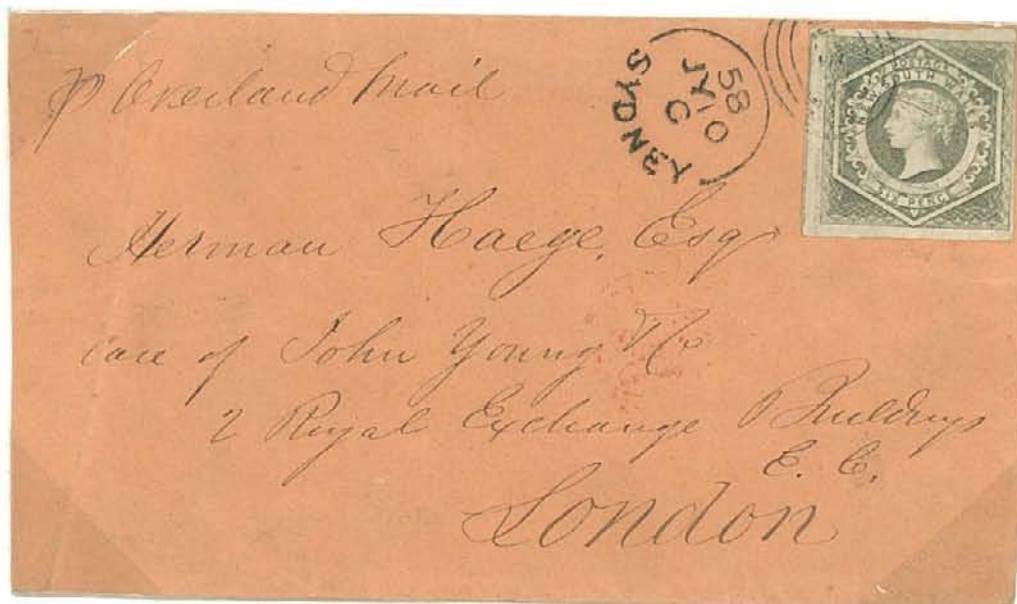 p Overland Mail
SYDNEY
C
JY 10
58
POSTAGE
NEW SOUTH WALES
SIX PENCE
Herman Haege, Esq
care of John Young
2 Royal Exchange Buildings
E. C.
London